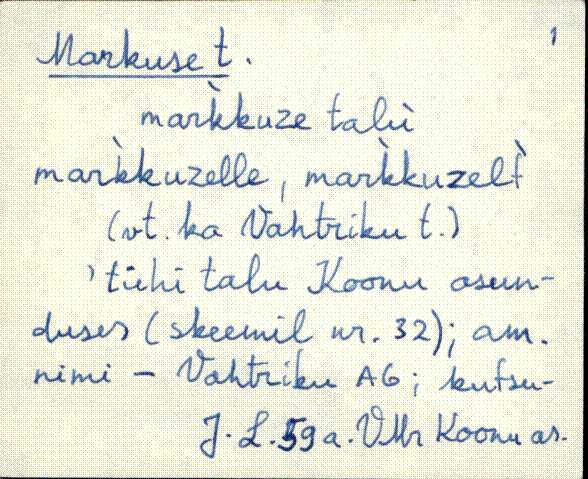 Markuse t. 1
mar̀kkuze talù
mar̀kkuzelle, mar̀kkuzelt̀
(vt. ka Vahtriku t.)
'tühi talu Koonu asun-
duses (skeemil nr. 32); am.
nimi - Vahtriku A6; kutsu-
J. L. 59 a. VMr Koonu as.